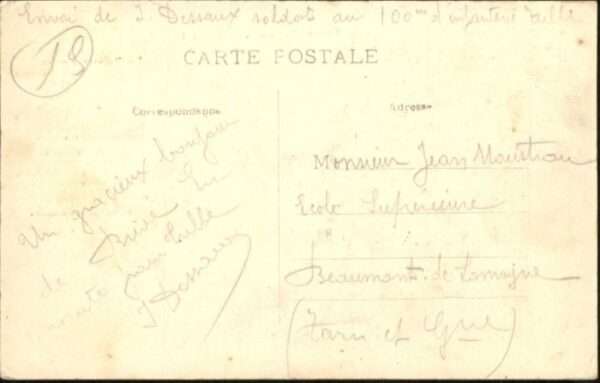 Envoi de J. Dessaux soldat au 100me d'infanterie Tulle
CARTE POSTALE
Correspondance
Adresse
Un gracieux bonjour
de Brive En
route pour Tulle
J Dessaux
Monsieur Jean
Ecole Supérieure
Beaumont-de-Lomagne
(Tarn et Gne)